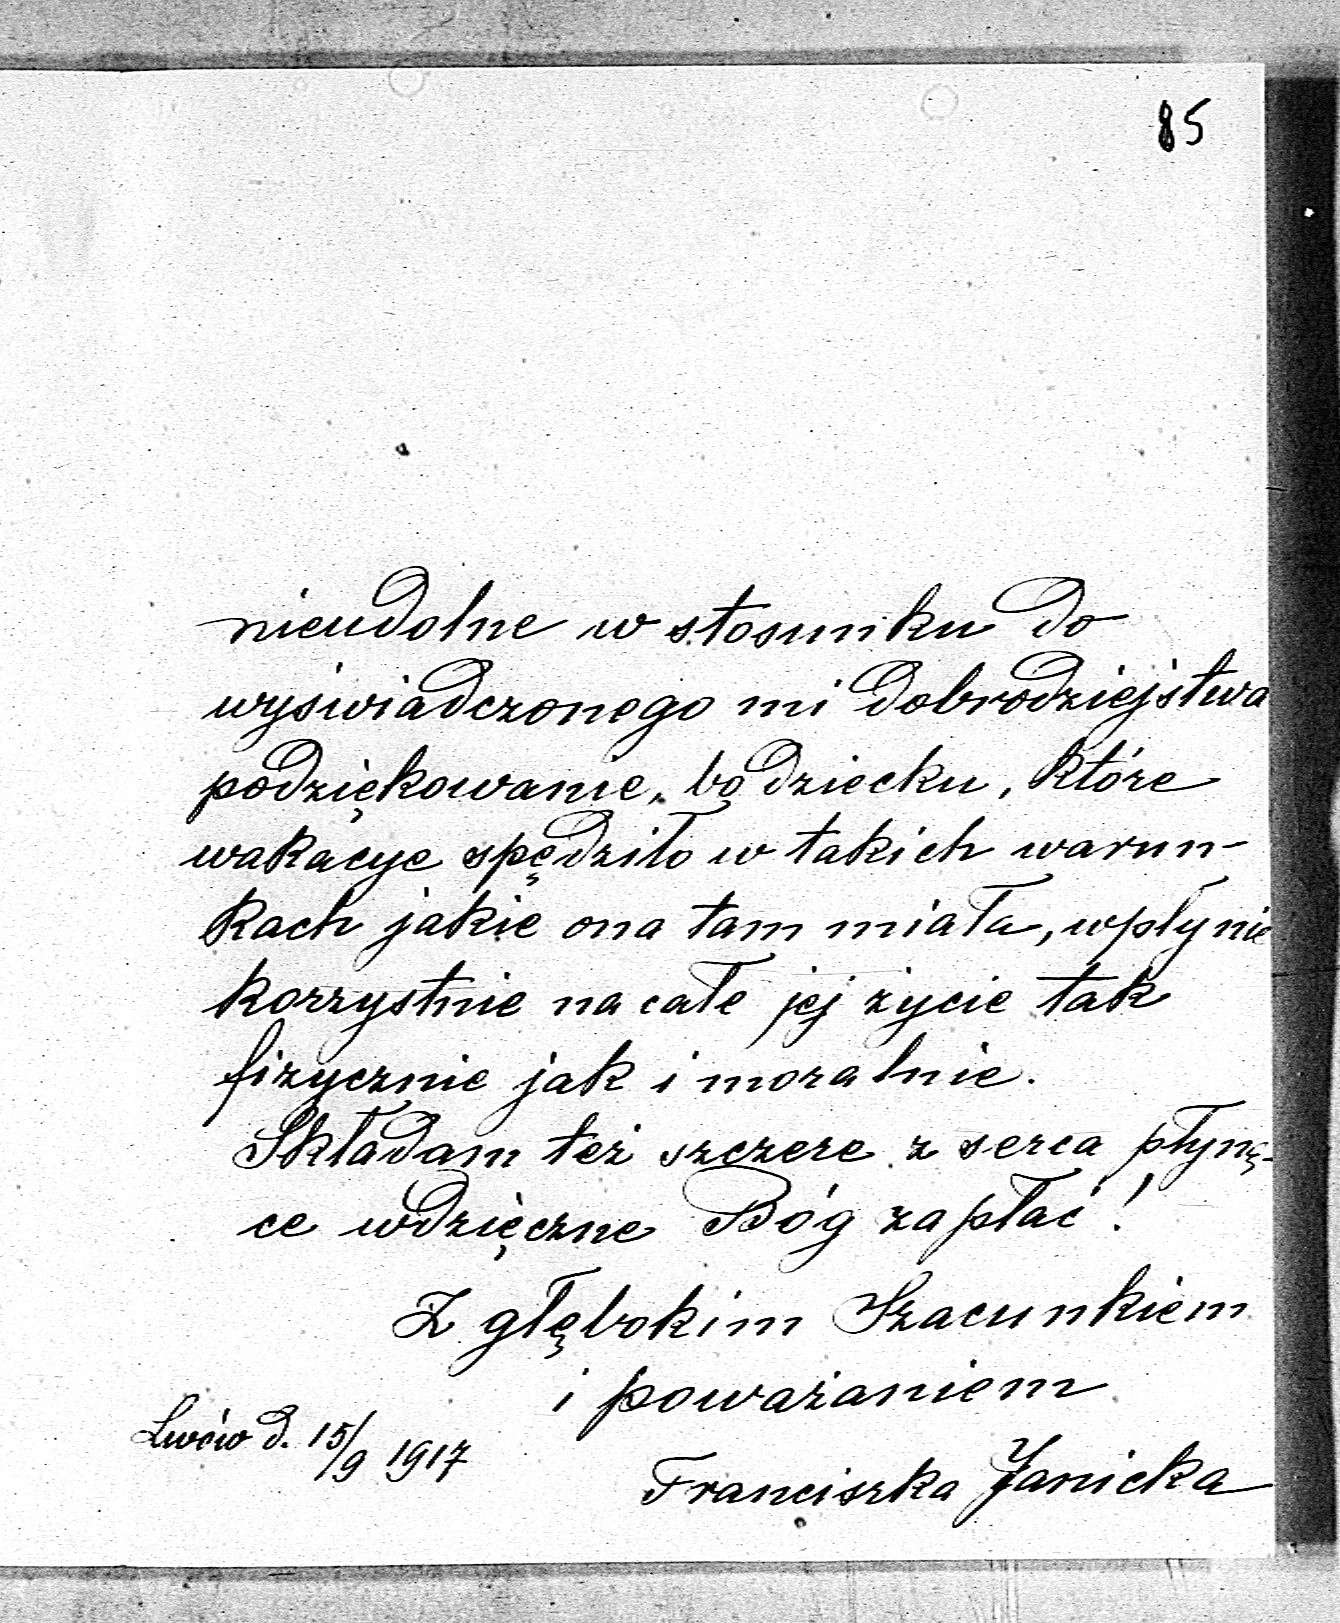 85
nieudolne w stosunku do
wyświadczonego mi dobrodziejstwa
podziękowanie, bo dziecku, które
wakacye spędziło w takich warun-
kach jakie ona tam miała, wpłynie
korzystnie na całe jej życie tak
fizycznie jak i moralnie.
Składam też szczere z serca płyną-
ce wdzięczne Bóg zapłać!
Z głębokim Szacunkiem
i poważaniem
Lwów d. 15/9 1917
Franciszka Janicka